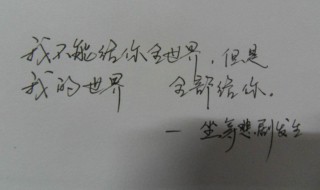 我不能给你全世界,但是
我的世界 全部给你.
— 坐等悲剧发生